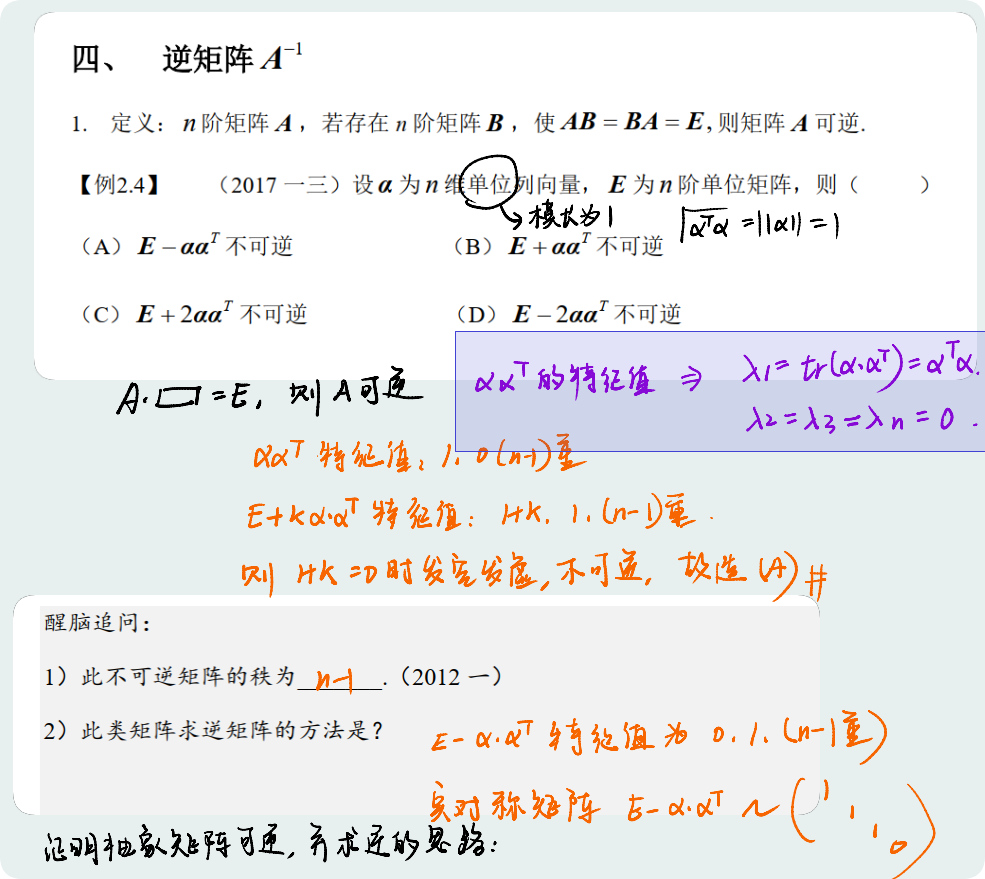 四、 逆矩阵 A⁻¹
1. 定义：n 阶矩阵 A，若存在 n 阶矩阵 B，使 AB = BA = E, 则矩阵 A 可逆.
【例2.4】 （2017 一三）设 α 为 n 维单位列向量， E 为 n 阶单位矩阵，则（ ）
模长为1 √αᵀα = ||α|| = 1
（A）E − ααᵀ 不可逆 （B）E + ααᵀ 不可逆
（C）E + 2ααᵀ 不可逆 （D）E − 2ααᵀ 不可逆
ααᵀ 的特征值 ⇒ λ1 = tr(α·αᵀ) = αᵀα.
λ2 = λ3 = λn = 0.
A·□ = E, 则 A 可逆
ααᵀ 特征值: 1. 0 (n-1)重
E+kα·αᵀ 特征值: 1+k. 1. (n-1)重.
则 1+k = 0 时 不可逆, 故选 (A) #
醒脑追问：
1）此不可逆矩阵的秩为 n-1 .（2012 一）
2）此类矩阵求逆矩阵的方法是？
E - α·αᵀ 特征值为 0. 1. (n-1重)
实对称矩阵 E - α·αᵀ ~ (1 1 1 0)
证明抽象矩阵可逆, 并求逆的思路: